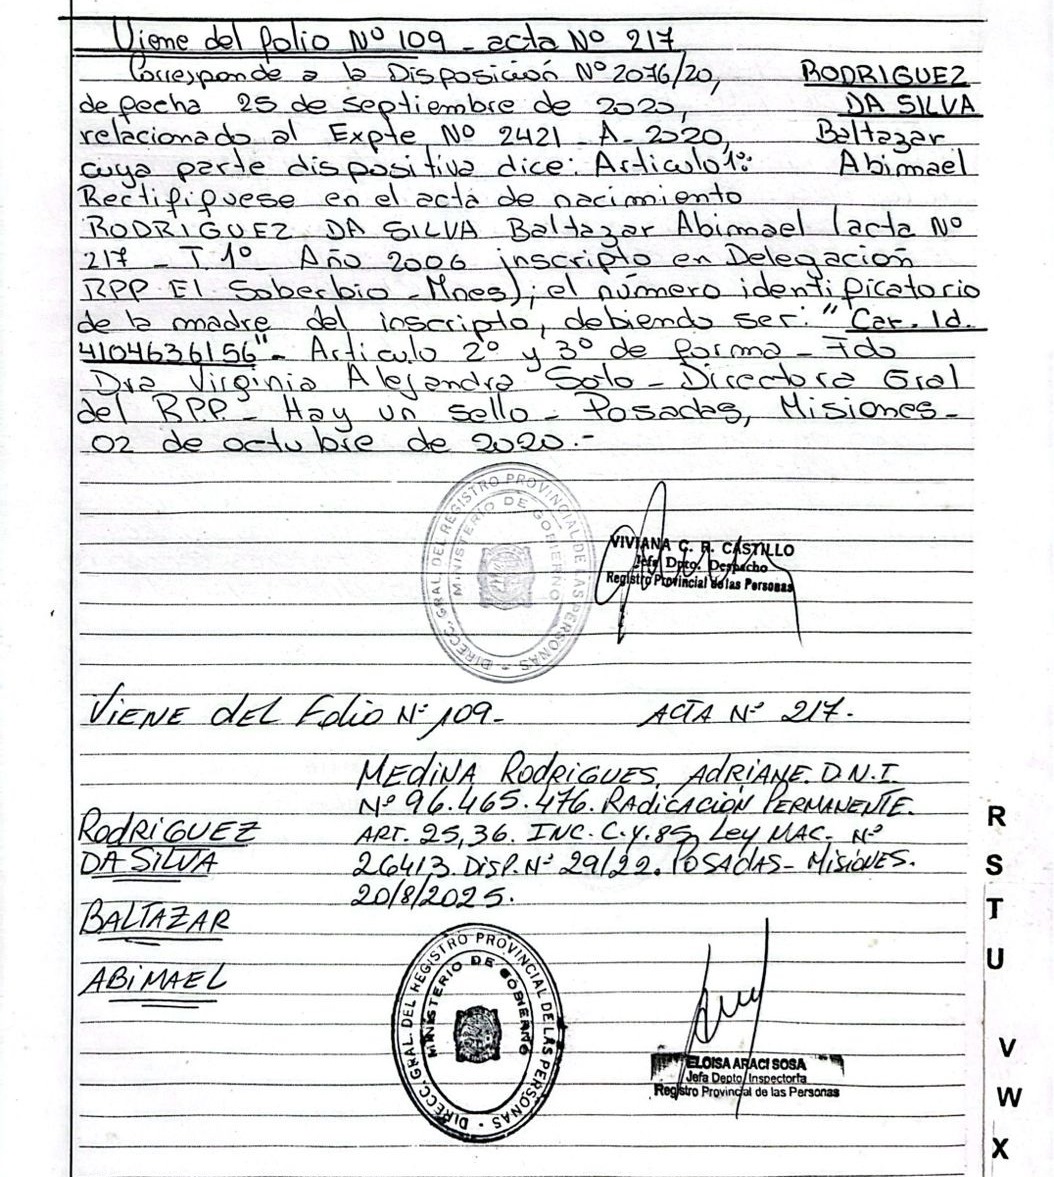 Viene del folio Nº 109 - acta Nº 217
Corresponde a la Disposición Nº 2076/20,
de fecha 25 de septiembre de 2020,
relacionado al Expte Nº 2421 - A - 2020,
cuya parte dispositiva dice: Articulo 1º:
RODRIGUEZ
DA SILVA
Baltazar
Abimael
Rectifíquese en el acta de nacimiento
RODRIGUEZ DA SILVA Baltazar Abimael (acta Nº
217 - T. 1º Año 2006 inscripto en Delegación
RPP El Soberbio - Mnes); el número identificatorio
de la madre del inscripto, debiendo ser: "Car. Id.
4104636156" - Articulo 2º y 3º de forma - Fdo
Dra Virginia Alejandra Soto - Directora Gral
del RPP - Hay un sello - Posadas, Misiones -
02 de octubre de 2020.-
DIRECC. GRAL. DEL REGISTRO PROVINCIAL DE LAS PERSONAS
MINISTERIO DE GOBIERNO
VIVIANA C. R. CASTILLO
Jefa Dpto. Despacho
Registro Provincial de las Personas
VIENE dEL Folio Nº 109. - ACTA Nº 217.
MEDINA RODRIGUES, ADRIANE. D.N.I.
Nº 96.465.476. RADICACIÓN PERMANENTE.
ART. 25,36. INC. C.Y. 85, Ley NAC. Nº
26413. DISP. Nº 29/22. POSADAS - MISIONES.
20/8/2025.
RODRIGUEZ
DA SILVA
BALTAZAR
ABIMAEL
DIRECC. GRAL. DEL REGISTRO PROVINCIAL DE LAS PERSONAS
MINISTERIO DE GOBIERNO
ELOISA ARACI SOSA
Jefa Depto Inspectoría
Registro Provincial de las Personas
R
S
T
U
V
W
X